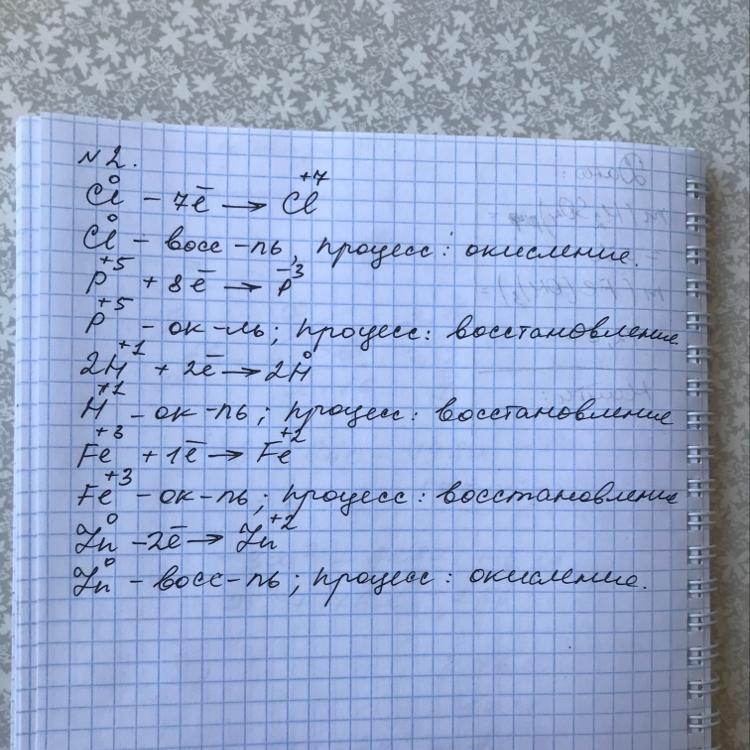 №2.
Cl⁰ – 7ē → Cl⁺⁷
Cl⁰ – восс-ль, процесс: окисление.
P⁺⁵ + 8ē → P⁻³
P⁺⁵ – ок-ль; процесс: восстановление
2H⁺¹ + 2ē → 2H⁰
H⁺¹ – ок-ль; процесс: восстановление
Fe⁺³ + 1ē → Fe⁺²
Fe⁺³ – ок-ль; процесс: восстановление
Zn⁰ – 2ē → Zn⁺²
Zn⁰ – восс-ль; процесс: окисление.